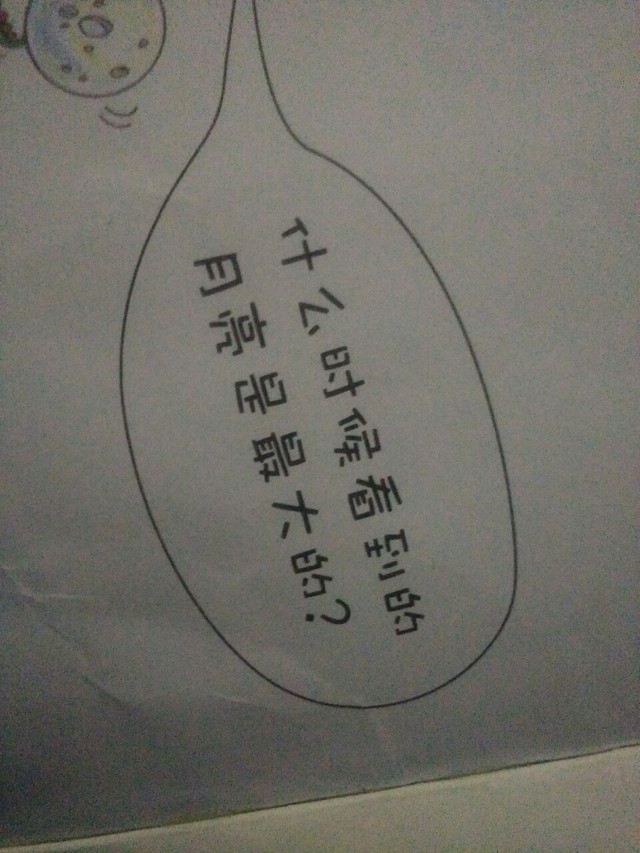 什么时候看到的
月亮是最大的?